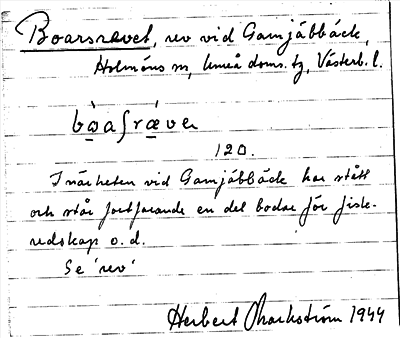 Boarsrevet, rev vid Gamjäbbäck,
Holmöns sn, Umeå doms. tg, Västerb. l.
bὼaʃrǽver
120.
I närheten vid Gamjäbbäck har stått
och står fortfarande en del bodar för fisk-
redskap o.d.
Se 'rev'
Herbert Markström 1944